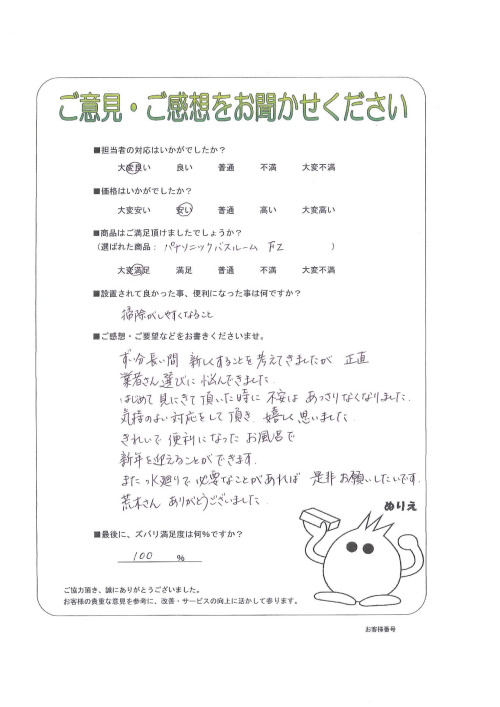 ご意見・ご感想をお聞かせください
■担当者の対応はいかがでしたか？
大変良い 良い 普通 不満 大変不満
■価格はいかがでしたか？
大変安い 安い 普通 高い 大変高い
■商品はご満足頂けましたでしょうか？
（選ばれた商品： パナソニックバスルーム FZ ）
大変満足 満足 普通 不満 大変不満
■設置されて良かった事、便利になった事は何ですか？
掃除がしやすくなること
■ご感想・ご要望などをお書きくださいませ。
ずい分長い間 新しくすることを考えてきましたが 正直
業者さん選びに悩んできました.
はじめて見にきて頂いた時に 不安は あっさりなくなりました.
気持のよい対応をして頂き 嬉しく思いました.
きれいで 便利になった お風呂で
新年を迎えることができます.
また水廻りで必要なことがあれば 是非お願いしたいです.
荒木さん ありがとうございました.
ぬりえ
■最後に、ズバリ満足度は何%ですか？
100 %
ご協力頂き、誠にありがとうございました。
お客様の貴重な意見を参考に、改善・サービスの向上に活かして参ります。
お客様番号